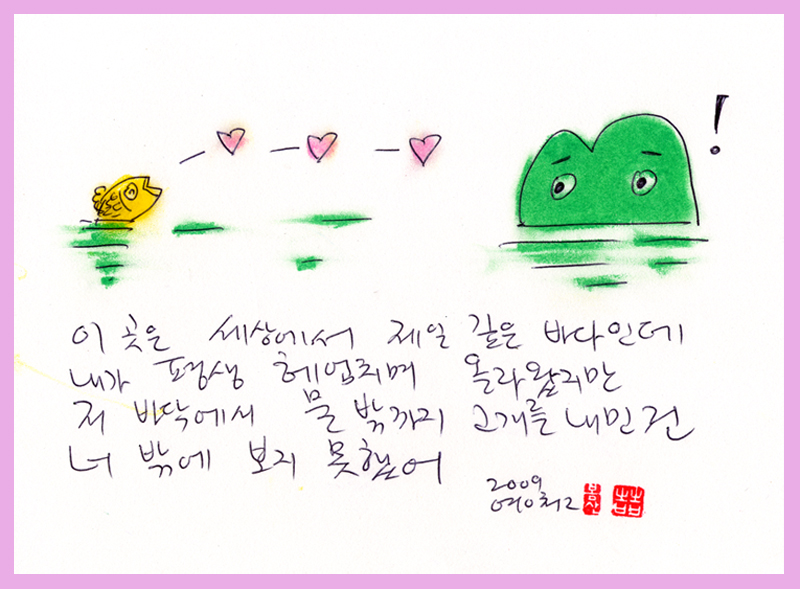 !
이 곳은 세상에서 제일 깊은 바다인데
내가 평생 헤엄치며 올라왔지만
저 바닥에서 물 밖까지 고개를 내민 건
너 밖에 보지 못했어
2009